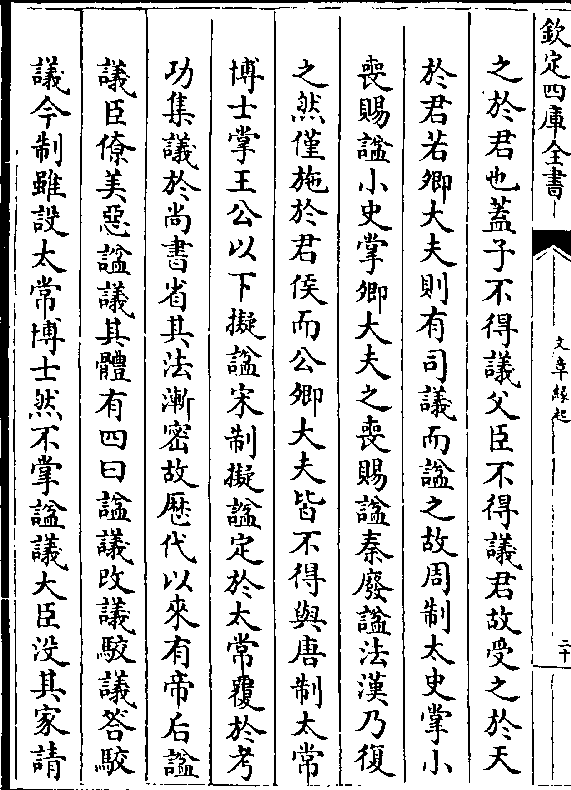 欽定四庫全書
文章緣起
二十
之於君也蓋子不得議父臣不得議君故受之於天
於君若卿大夫則有司議而諡之故周制太史掌小
喪賜諡小史掌卿大夫之喪賜諡秦廢諡法漢乃復
之然僅施於君侯而公卿大夫皆不得與唐制太常
博士掌王公以下擬諡宋制擬諡定於太常覆於考
功集議於尚書省其法漸密故歴代以來有帝后諡
議臣僚美惡諡議其體有四曰諡議改議駁議答駁
議今制雖設太常博士然不掌諡議大臣没其家請